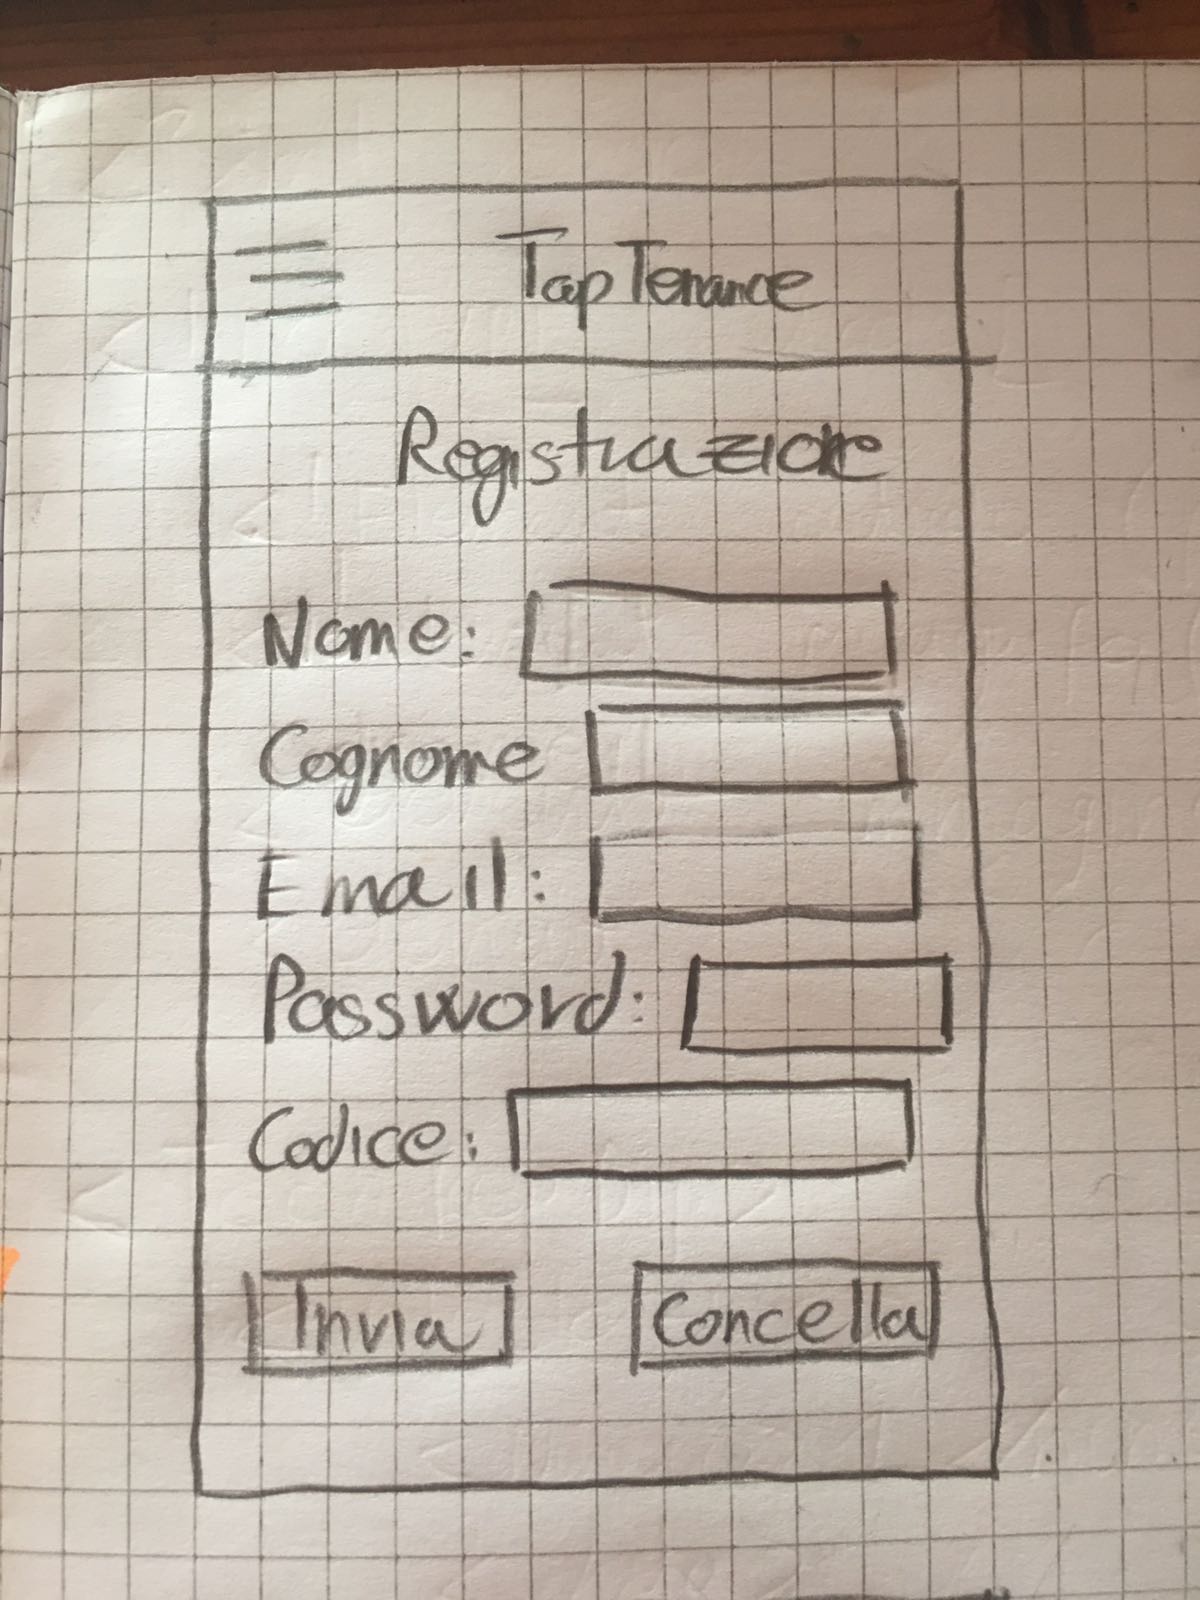 TapTenance
Registrazione
Nome:
Cognome
Email:
Password:
Codice:
Invia
Concella